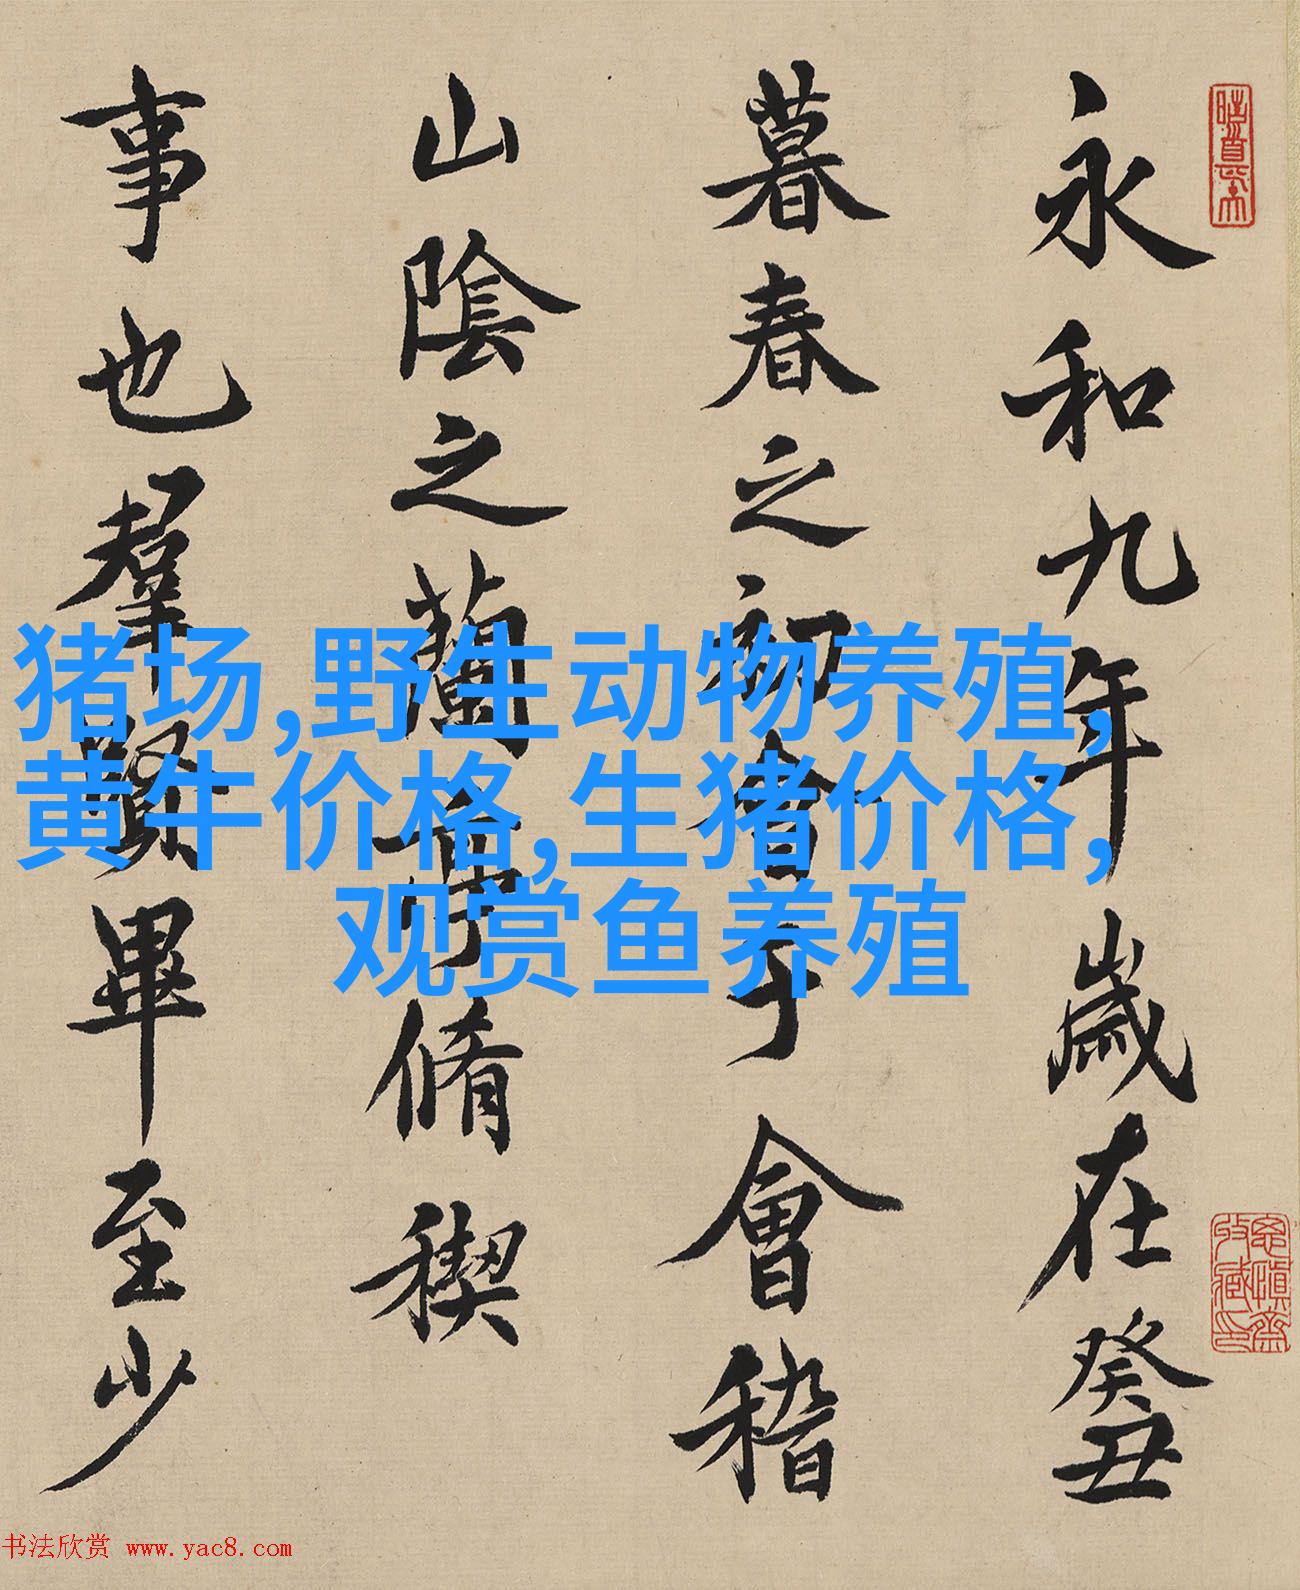 永和九年歲在癸丑
暮春之初會于會稽
山陰之蘭亭脩稧
事也羣賢畢至少
猪场,野生动物养殖,
黄牛价格,生猪价格,
观赏鱼养殖
书法欣赏 www.yac8.com